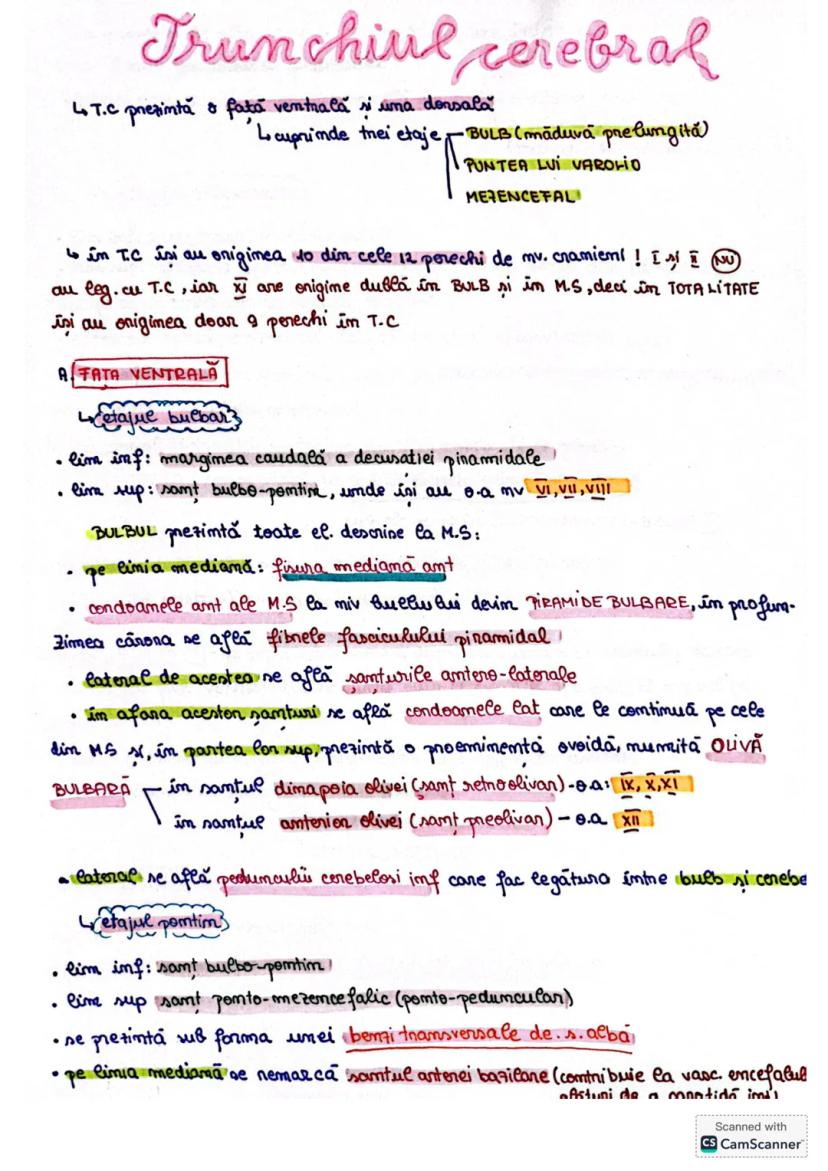 Trunchiul cerebral
↳ T.C prezintă o față ventrală și una dorsală
↳ cuprinde trei etaje - BULB (măduvă prelungită)
PUNTEA LUI VAROLIO
MEZENCEFAL
↳ în T.C își au originea 10 din cele 12 perechi de nv. cranieni ! I și II NU
au leg. cu T.C, iar XI are origine dublă în BULB și în M.S, deci în TOTALITATE
își au originea doar 9 perechi în T.C
A. FAȚA VENTRALĂ
↳ etajul bulbar
• lim inf: marginea caudală a decusatiei piramidale
• lim sup: șanț bulbo-pontin, unde își au o.a nv VI, VII, VIII
BULBUL prezintă toate el. descrise la M.S:
• pe linia mediană: fisura mediană ant
• cordoanele ant ale M.S la niv bulbului devin PIRAMIDE BULBARE, în profun-
zimea cărora se află fibrele fasciculului piramidal
• lateral de acestea se află șanțurile antero-laterale
• în afara acestor șanțuri se află cordoanele lat care le continuă pe cele
din MS și, în partea lor sup, prezintă o proeminență ovoidă, numită OLIVĂ
BULBARĂ - în șanțul dinapoia olivei (șanț retroolivar) - o.a: IX, X, XI
în șanțul anterior olivei (șanț preolivar) - o.a XII
• lateral se află pedunculii cerebeloși inf care fac legătura între bulb și cerebe
↳ etajul pontin
• lim inf: șanț bulbo-pontin
• lim sup șanț ponto-mezencefalic (ponto-peduncular)
• se prezintă sub forma unei benzi transversale de s. albă
• pe linia mediană se remarcă șantul arterei bazilare (contribuie la vasc. encefalul
alături de a carotidă int)
Scanned with
CS CamScanner